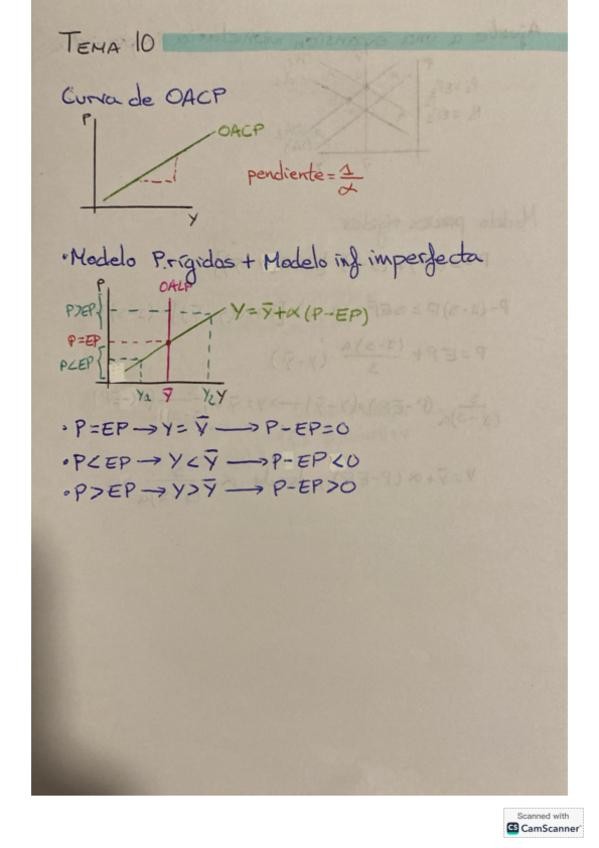 TEMA 10
Curva de OACP
P
OACP
pendiente = 1/α
Y
• Modelo P. rígidos + Modelo inf imperfecta
P
OALP
P>EP
Y = Ȳ + α (P - EP)
P=EP
P<EP
Y1 Ȳ Y2 Y
• P = EP → Y = Ȳ → P - EP = 0
• P < EP → Y < Ȳ → P - EP < 0
• P > EP → Y > Ȳ → P - EP > 0
Scanned with
CS CamScanner